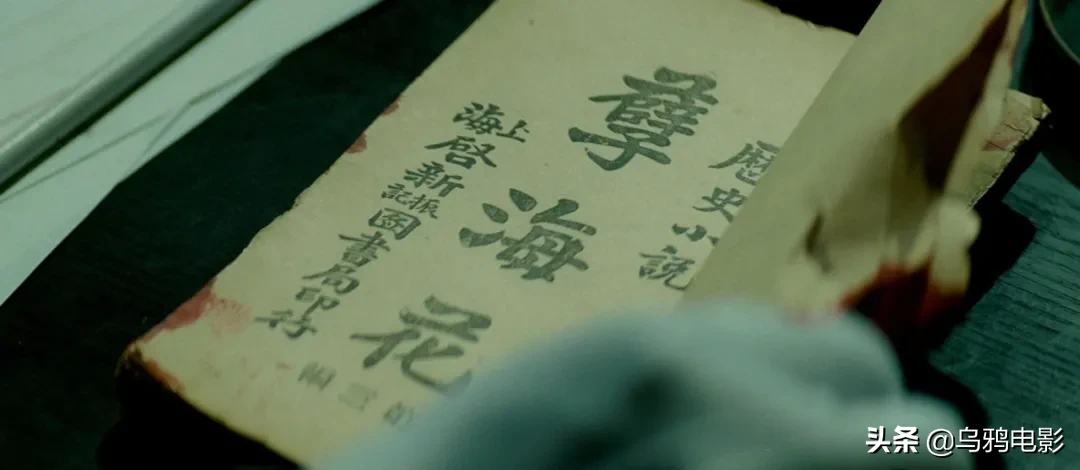 歷史小說
孽海花
上海啓新振記圖書局印行
头条 @乌鸦电影